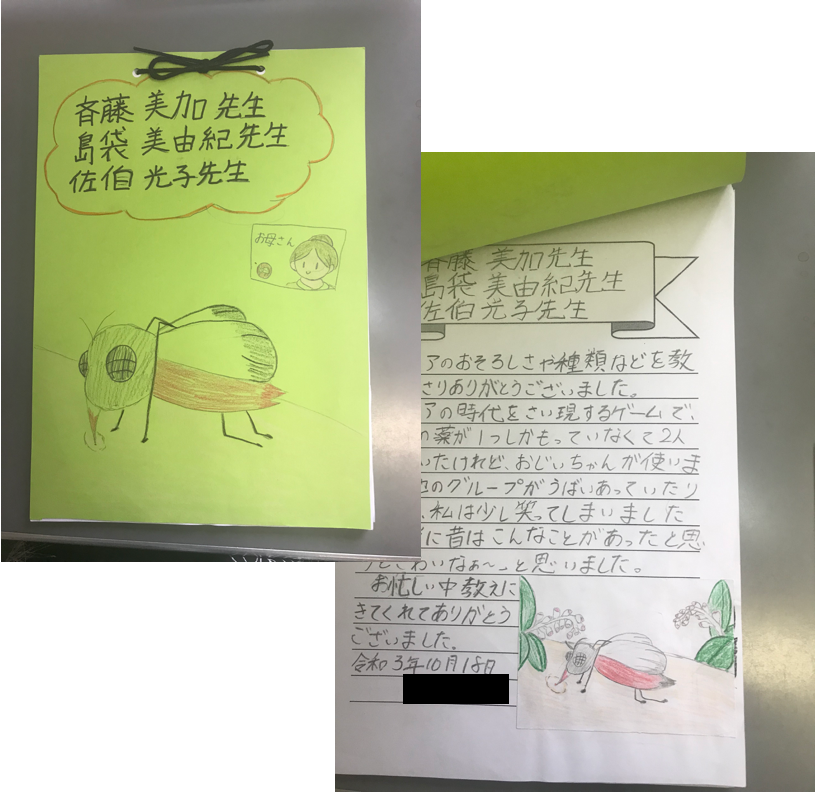 斉藤 美加 先生
島袋 美由紀先生
佐伯 光子先生
お母さん
斉藤 美加先生
島袋 美由紀先生
佐伯 光子先生
アのおそろしさや種類などを教
さりありがとうございました。
アの時代をさい現するゲームで、
の薬が1つしかもっていなくて2人
いたけれど、おじいちゃんが使いま
他のグループがうばいあっていたり
、私は少し笑ってしまいました
に昔はこんなことがあったと思
こわいなぁ〜」と思いました。
お忙しい中教えに
きてくれてありがとう
ございました。
令和3年10月18日